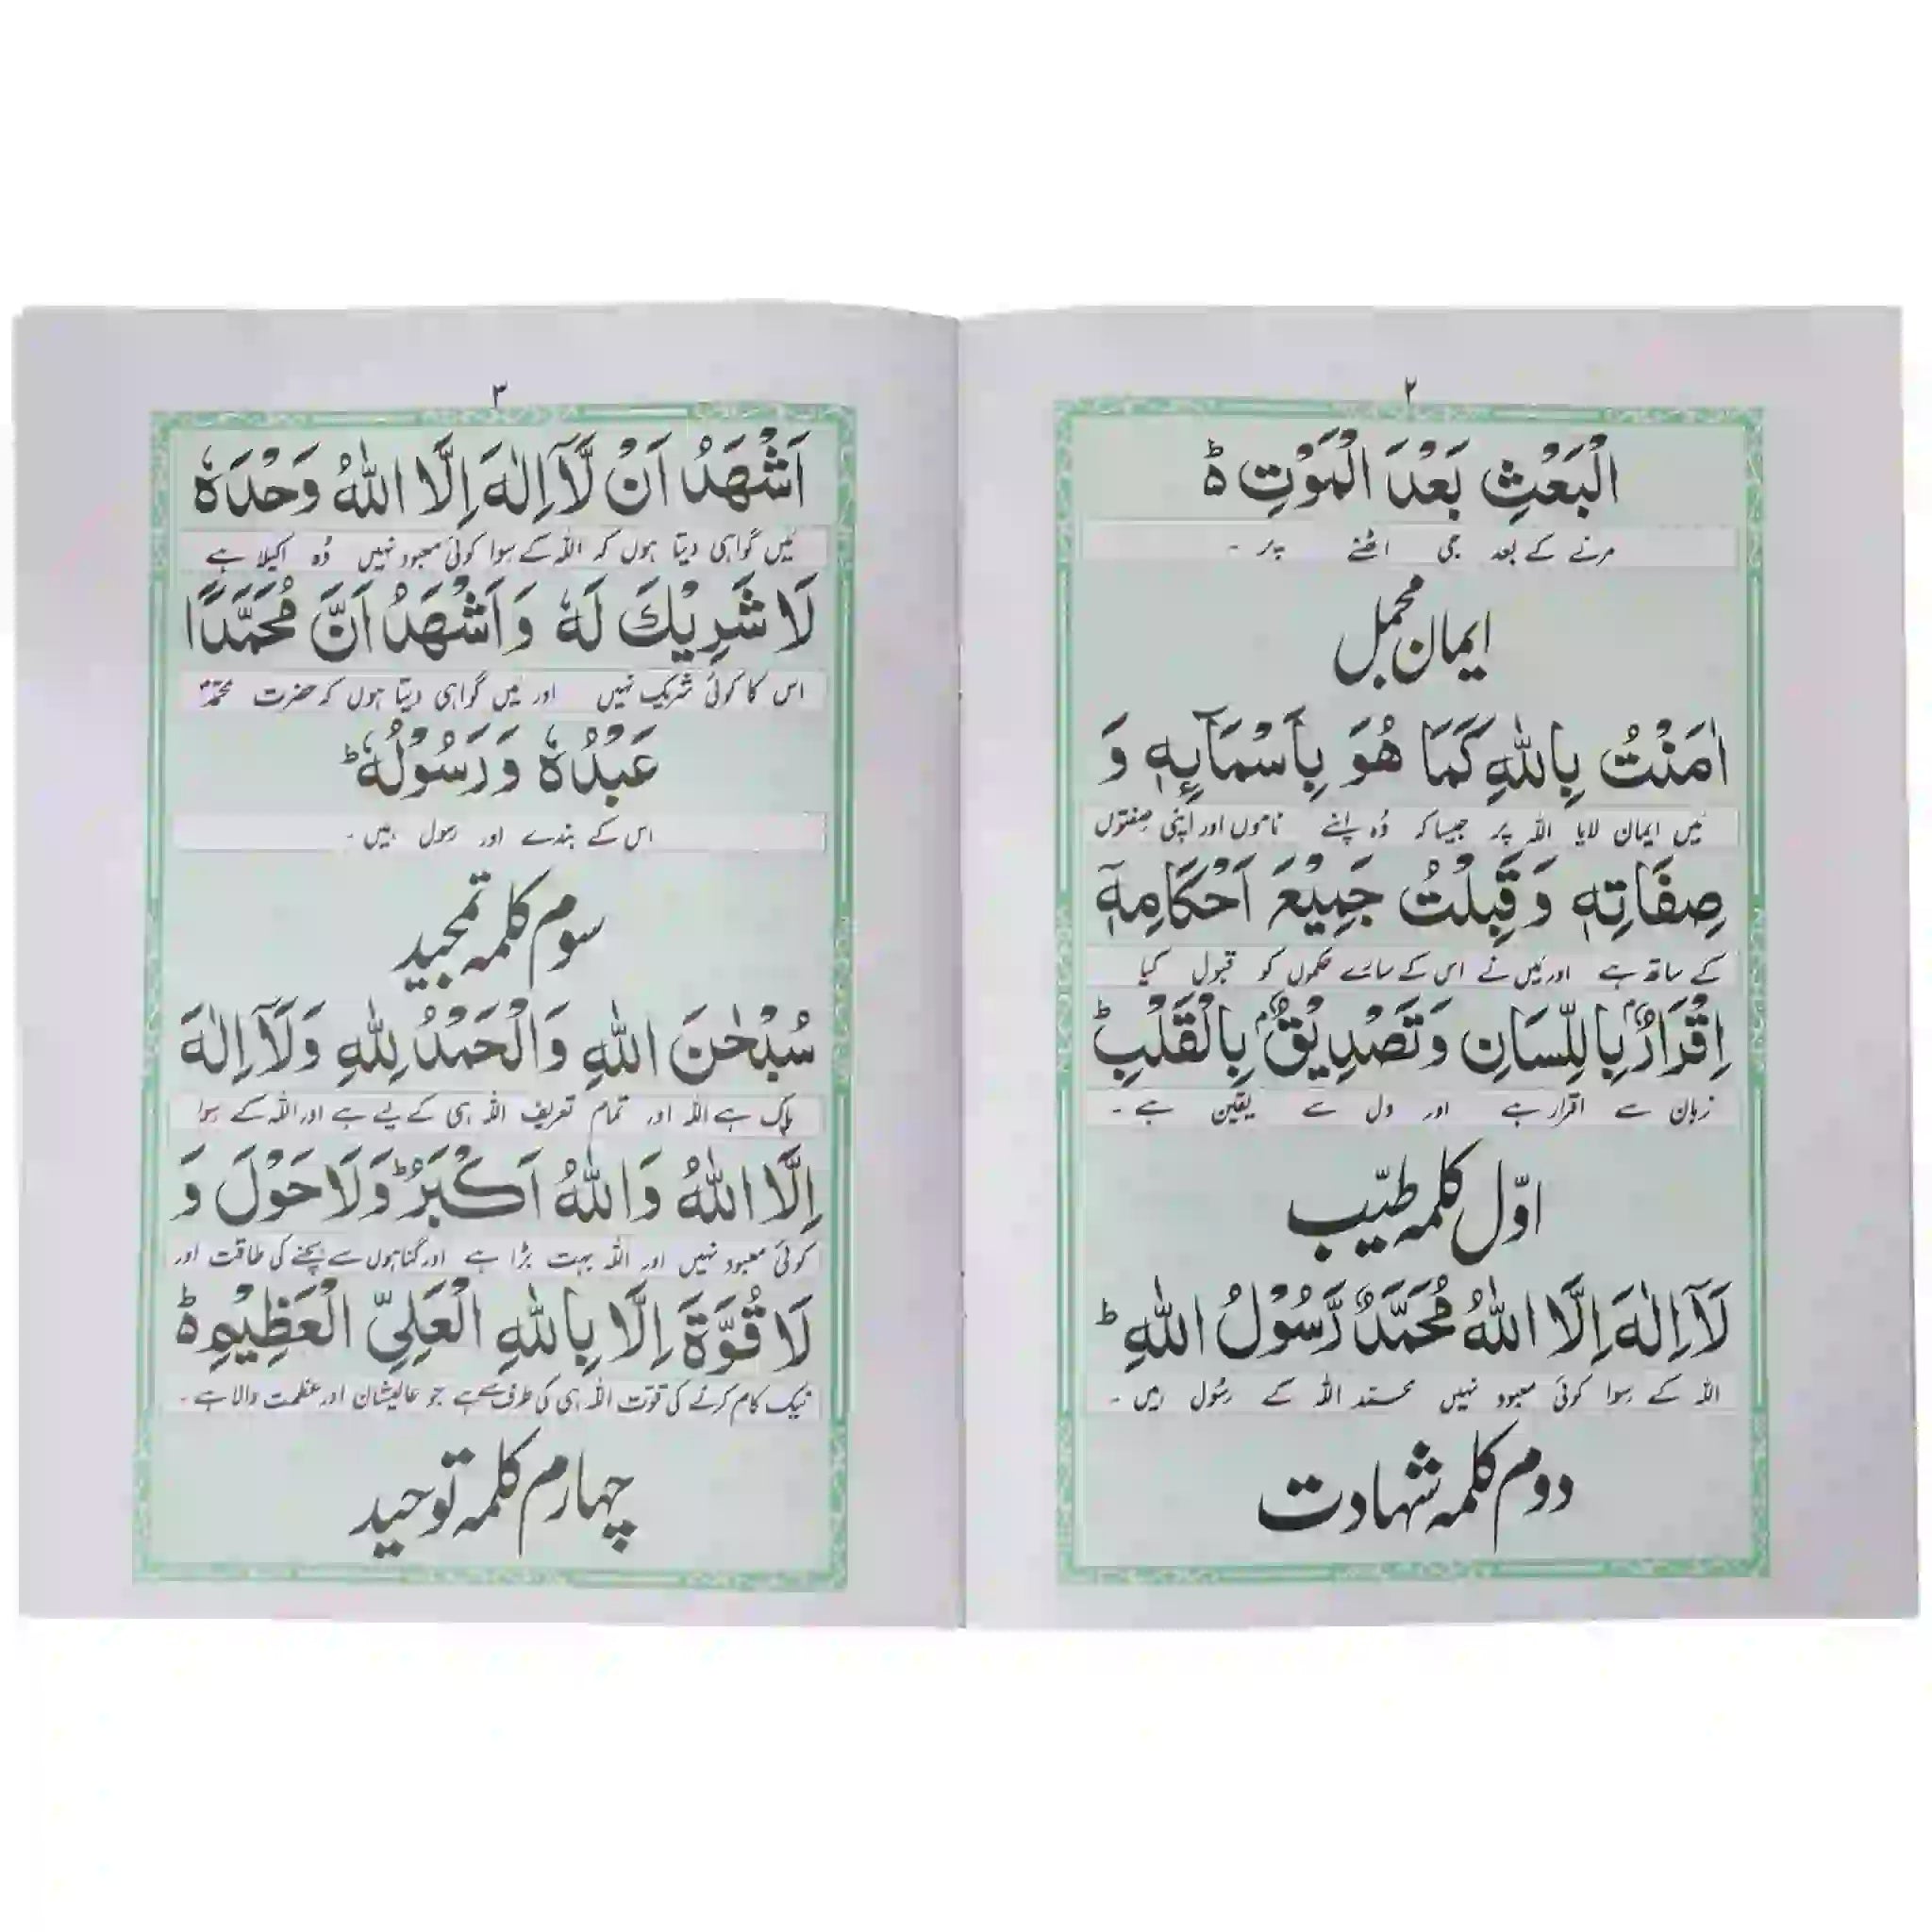 ۲
الْبَعْثِ بَعْدَ الْمَوْتِ ؕ
مرنے کے بعد جی اٹھنے پر ۔
ایمان مجمل
اٰمَنْتُ بِاللّٰهِ كَمَا هُوَ بِاَسْمَآىِٕهٖ وَ
مَیں ایمان لایا اللہ پر جیسا کہ وُہ اپنے ناموں اور اپنی صِفتوں
صِفَاتِهٖ وَقَبِلْتُ جَمِيْعَ اَحْكَامِهٖٓ
کے ساتھ ہے اور مَیں نے اس کے سارے حکموں کو قبول کیا
اِقْرَارٌۢ بِاللِّسَانِ وَتَصْدِيْقٌۢ بِالْقَلْبِ ؕ
زبان سے اقرار ہے اور دل سے یقین ہے ۔
اوّل کلمہ طیّب
لَآ اِلٰهَ اِلَّا اللّٰهُ مُحَمَّدٌ رَّسُوْلُ اللّٰهِ ؕ
اللہ کے سِوا کوئی معبود نہیں محمد اللہ کے رسُول ہیں ۔
دوم کلمہ شہادت
۳
اَشْهَدُ اَنْ لَّآ اِلٰهَ اِلَّا اللّٰهُ وَحْدَهٗ
مَیں گواہی دیتا ہوں کہ اللہ کے سِوا کوئی معبود نہیں وُہ اکیلا ہے
لَا شَرِيْكَ لَهٗ وَاَشْهَدُ اَنَّ مُحَمَّدًا
اس کا کوئی شریک نہیں اور مَیں گواہی دیتا ہوں کہ حضرت محمّدؐ
عَبْدُهٗ وَرَسُوْلُهٗ ؕ
اس کے بندے اور رسول ہیں ۔
سوم کلمہ تمجید
سُبْحٰنَ اللّٰهِ وَالْحَمْدُ لِلّٰهِ وَلَآ اِلٰهَ
پاک ہے اللہ اور تمام تعریف اللہ ہی کے لیے ہے اور اللہ کے سِوا
اِلَّا اللّٰهُ وَاللّٰهُ اَكْبَرُ ؕ وَلَا حَوْلَ وَ
کوئی معبود نہیں اور اللہ بہت بڑا ہے اور گناہوں سے بچنے کی طاقت اور
لَا قُوَّةَ اِلَّا بِاللّٰهِ الْعَلِيِّ الْعَظِيْمِ ؕ
نیک کام کرنے کی قوّت اللہ ہی کی طرف سے ہے جو عالیشان اور عظمت والا ہے ۔
چہارم کلمہ توحید